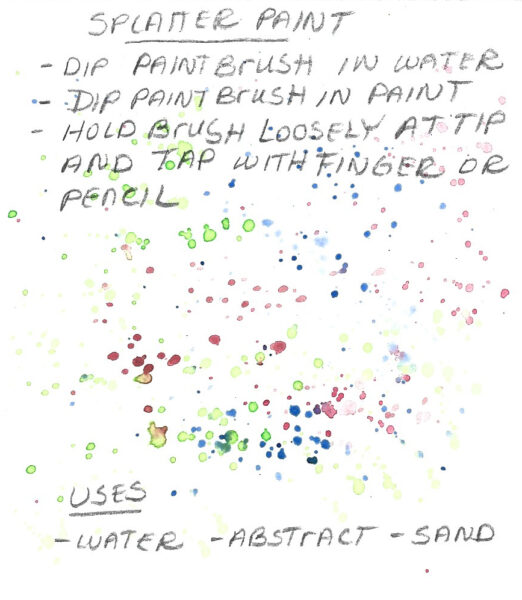 SPLATTER PAINT
- DIP PAINTBRUSH IN WATER
- DIP PAINTBRUSH IN PAINT
- HOLD BRUSH LOOSELY AT TIP
AND TAP WITH FINGER OR
PENCIL
USES
- WATER - ABSTRACT - SAND